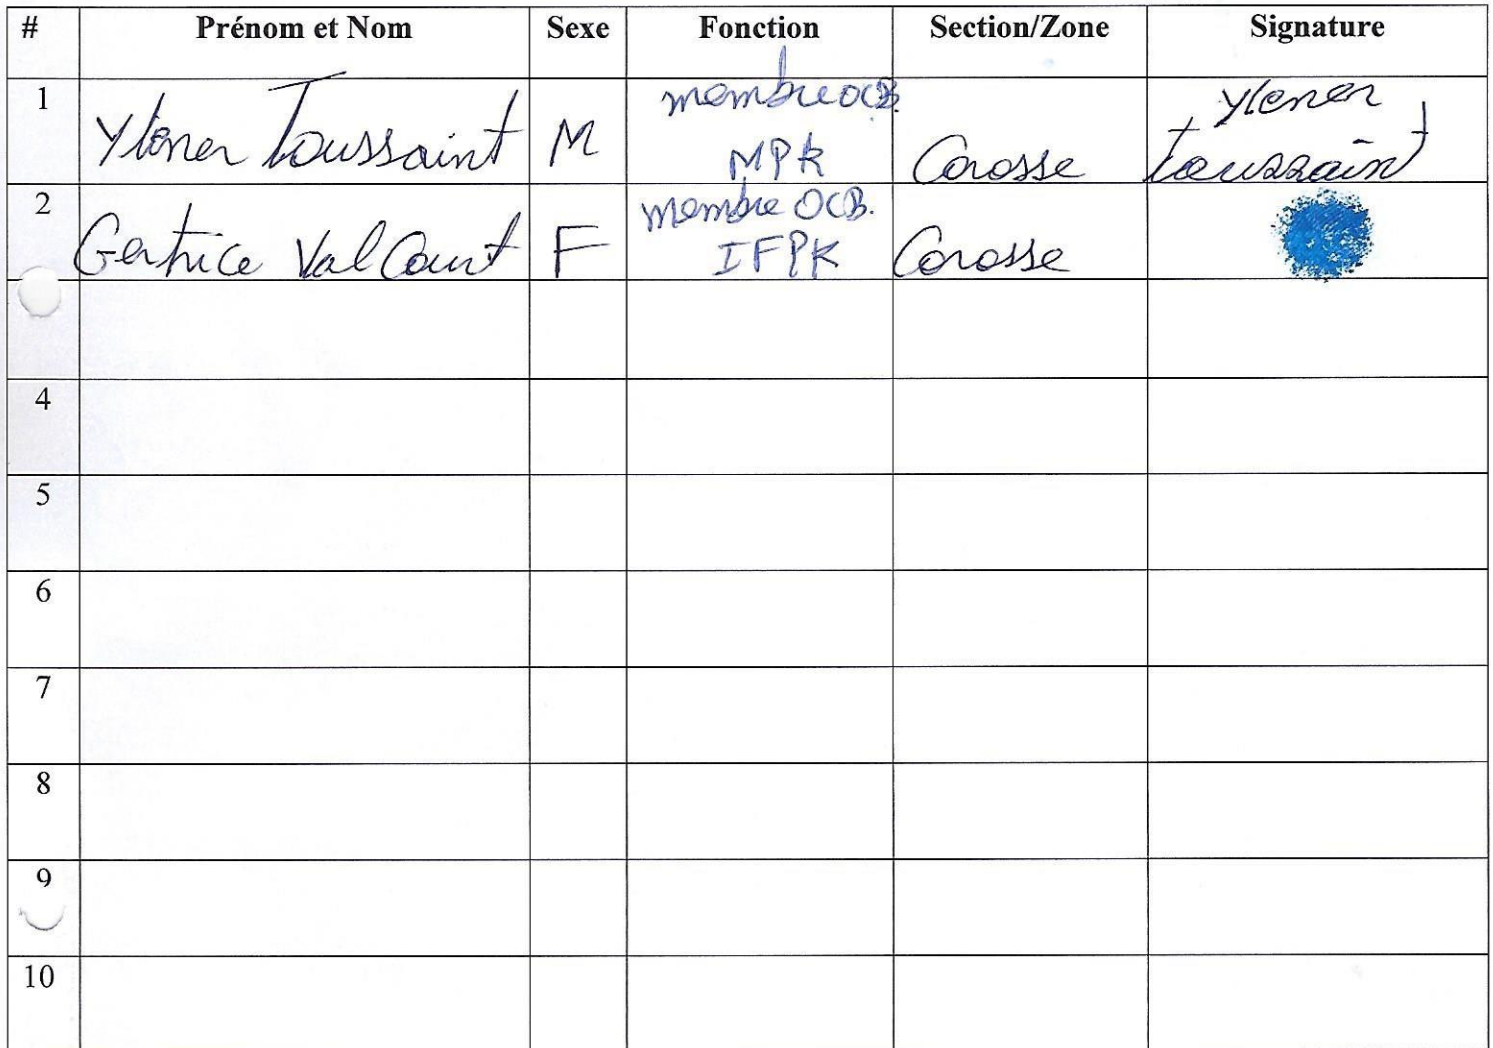 # Prénom et Nom Sexe Fonction Section/Zone Signature
1 Ylener Toussaint M membre OCB. MPK Corosse Ylener Toussaint
2 Gertrice ValCourt F membre OCB. IFPK Corosse
4
5
6
7
8
9
10